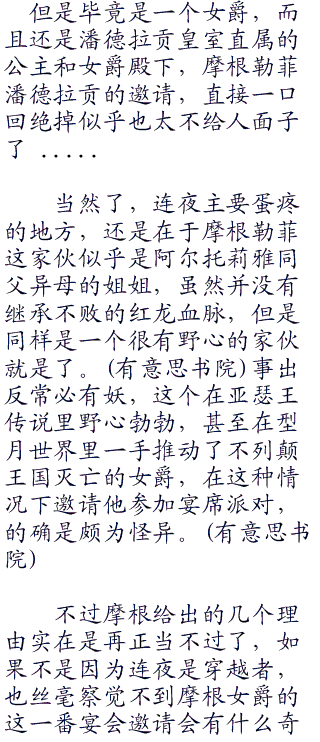 但是毕竟是一个女爵，而
且还是潘德拉贡皇室直属的
公主和女爵殿下，摩根勒菲
潘德拉贡的邀请，直接一口
回绝掉似乎也太不给人面子
了 .....
当然了，连夜主要蛋疼
的地方，还是在于摩根勒菲
这家伙似乎是阿尔托莉雅同
父异母的姐姐，虽然并没有
继承不败的红龙血脉，但是
同样是一个很有野心的家伙
就是了。(有意思书院)事出
反常必有妖，这个在亚瑟王
传说里野心勃勃，甚至在型
月世界里一手推动了不列颠
王国灭亡的女爵，在这种情
况下邀请他参加宴席派对，
的确是颇为怪异。(有意思书
院)
不过摩根给出的几个理
由实在是再正当不过了，如
果不是因为连夜是穿越者，
也丝毫察觉不到摩根女爵的
这一番宴会邀请会有什么奇